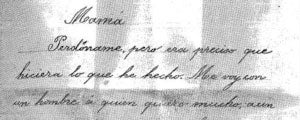 Mamá
Perdóname, pero era preciso que
hiciera lo que he hecho: Me voy con
un hombre a quien quiero mucho, aun